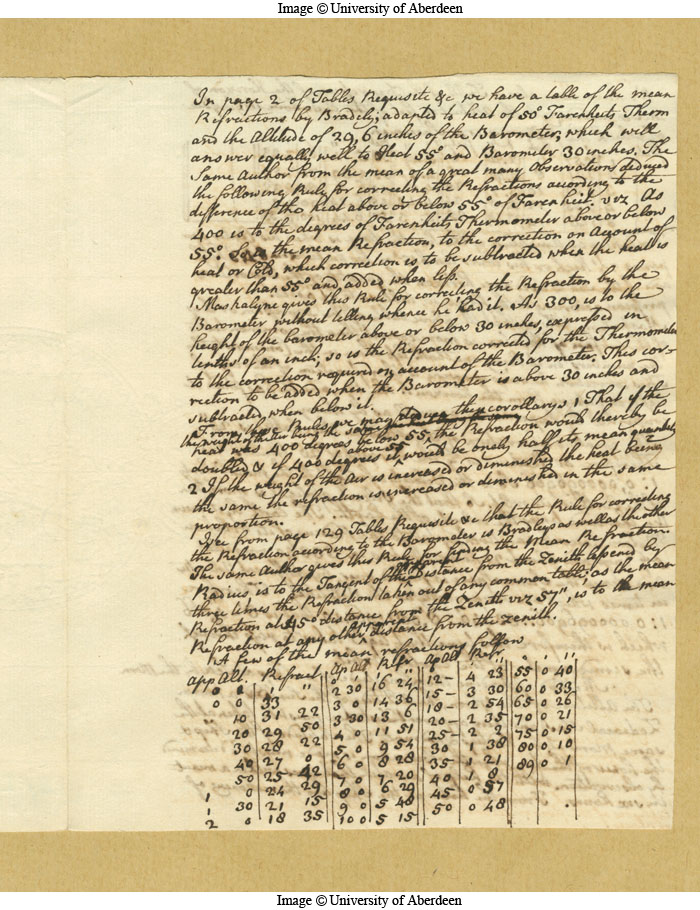 Image © University of Aberdeen
In page 2 of Tables Requisite &c we have a table of the mean
Refractions by Bradely, adapted to heat of 50° Farenheits Therm
and the Altitude of 29,6 inches of the Barometer, which will
answer equally well to Heat 55° and Barometer 30 inches. The
Same Author from the mean of a great many Observations deduced
the following Rule for correcting the Refractions acording to the
difference of the heat above or below 55° of Farenheit. viz As
400 is to the degrees of Farenheits Thermometer above or below
55°. So is the mean Refraction, to the correction on Account of
heat or Cold, which correction is to be subtracted when the heat is
greater than 55° and added when less.
Maskalyne gives this Rule for correcting the Refraction by the
Barometer without telling whence he had it. As 300, is to the
height of the barometer above or below 30 inches, expressed in
tenths of an inch; so is the Refraction corrected for the Thermometer
to the correction required on account of the Barometer. This cor-
rection to be added when the Barometer is above 30 inches and
subtracted, when below it.
From these Rules we may deduce these corollarys 1 That if the
the weight of the Air being the same
heat was 400 degrees below 55, the Refraction would thereby be
doubled & if 400 degrees above 55 it would be onely half its mean quantity
2 If the weight of the Air is increased or diminished the heat being
the same the refraction is increased or diminished in the same
proportion.
I see from page 129 Tables Requisite &c that the Rule for correcting
the Refraction according to the Barometer is Bradleys as well as the other
The same Author gives this Rule for finding the Mean Refraction.
Radius is to the Tangent of the apparent Distance from the Zenith lessend by
three times the Refraction taken out of any common table; as the mean
Refraction at 45° distance from the Zenith viz 57", is to the mean
Refraction at any other apparent distance from the zenith.
A few of the mean refractions follow
App Alt. Refract Ap Alt Refr Ap Alt Refr.
0 0 33 2 30 16 24 12 – 4 23 55 0 40
10 31 22 3 0 14 36 15 – 3 30 60 0 33
20 29 50 3 30 13 6 18 – 2 54 65 0 26
30 28 22 4 0 11 51 20 – 2 35 70 0 21
40 27 0 5 0 9 54 25 – 2 2 75 0 15
50 25 42 6 0 8 28 30 1 38 80 0 10
1 0 24 29 7 0 7 20 35 1 21 89 0 1
1 30 21 15 8 0 6 29 40 1 8
2 0 18 35 9 0 5 48 45 0 57
10 0 5 15 50 0 48
Image © University of Aberdeen